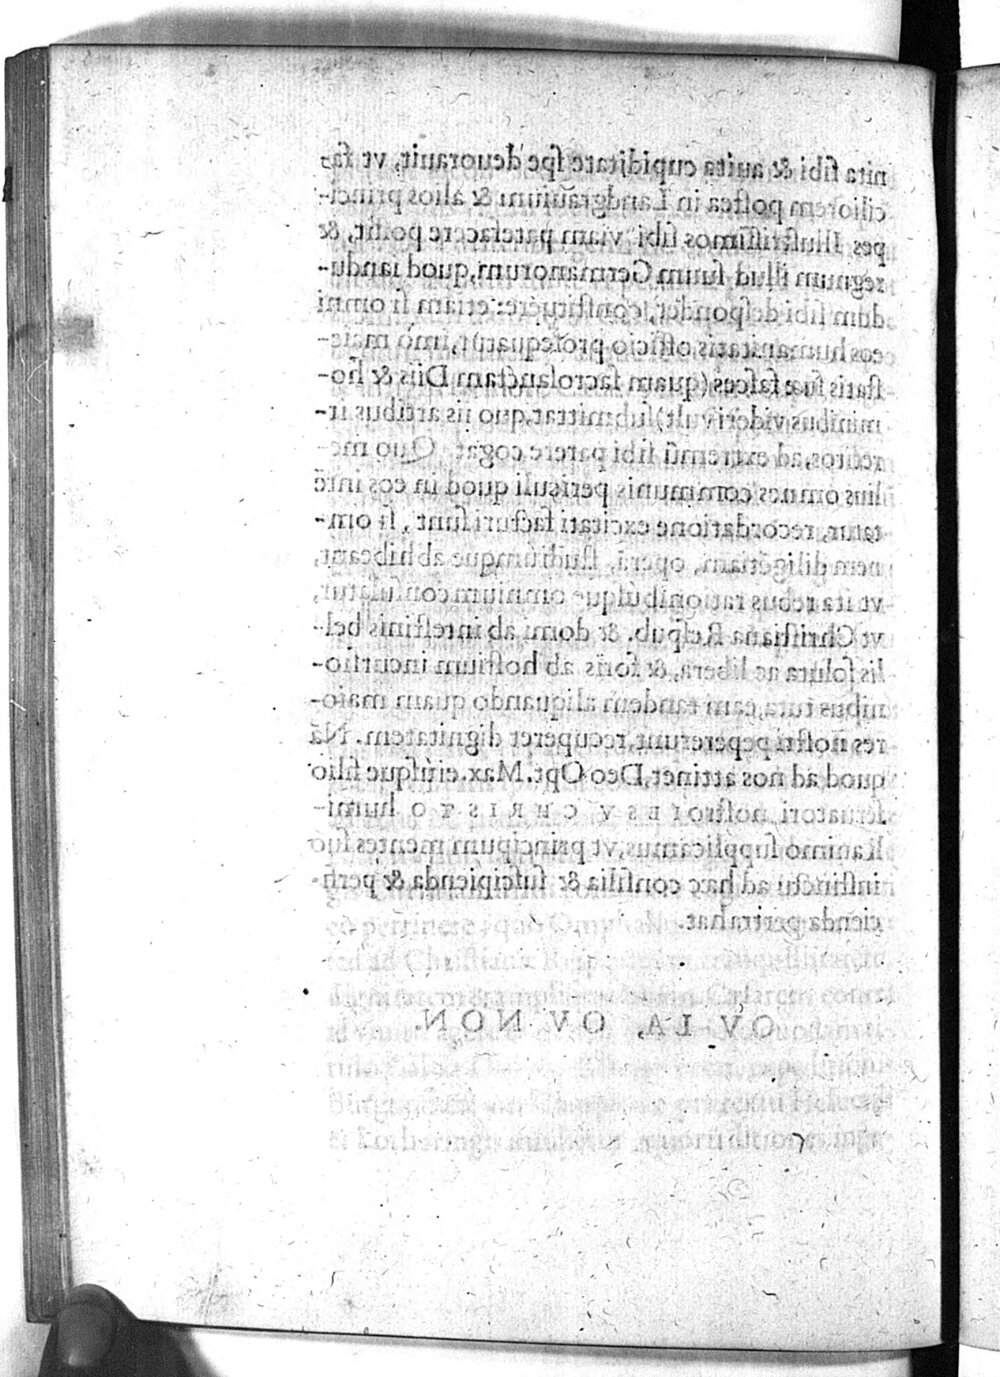 nita sibi & auita cupiditate spe deuorauit, vt fa-
ciliorem postea in Landgrauium & alios princi-
pes Illustrissimos sibi viam patefacere possit, &
regnum illud suum Germanorum, quod iandu-
dum sibi despondet, constituere: etiam si omni
eos humanitatis officio prosequatur, imò maie-
statis suæ fasces (quam sacrosanctam Diis & ho-
minibus videri vult) submittat, quo iis artibus ir-
retitos, ad extremū sibi parere cogat. Quo me-
lius omnes communis periculi quod in eos intē
tatur, recordatione excitati facturi sunt, si om-
nem diligētiam, operā, studiúmque adhibeant,
vt ita rebus rationibúsque omnium consulatur,
vt Christiana Respub. & domi ab intestinis bel-
lis soluta ac libera, & foris ab hostium incursio-
nibus tuta, eam tandem aliquando quam maio-
res nostri pepererunt, recuperet dignitatem. Nā
quod ad nos attinet, Deo Opt. Max. eiúsque filio
seruatori nostro IESV CHRISTO humi-
li animo supplicamus, vt principum mentes suo
instinctu ad hæc consilia & suscipienda & perfi-
cienda pertrahat.
OV LA, OV NON.